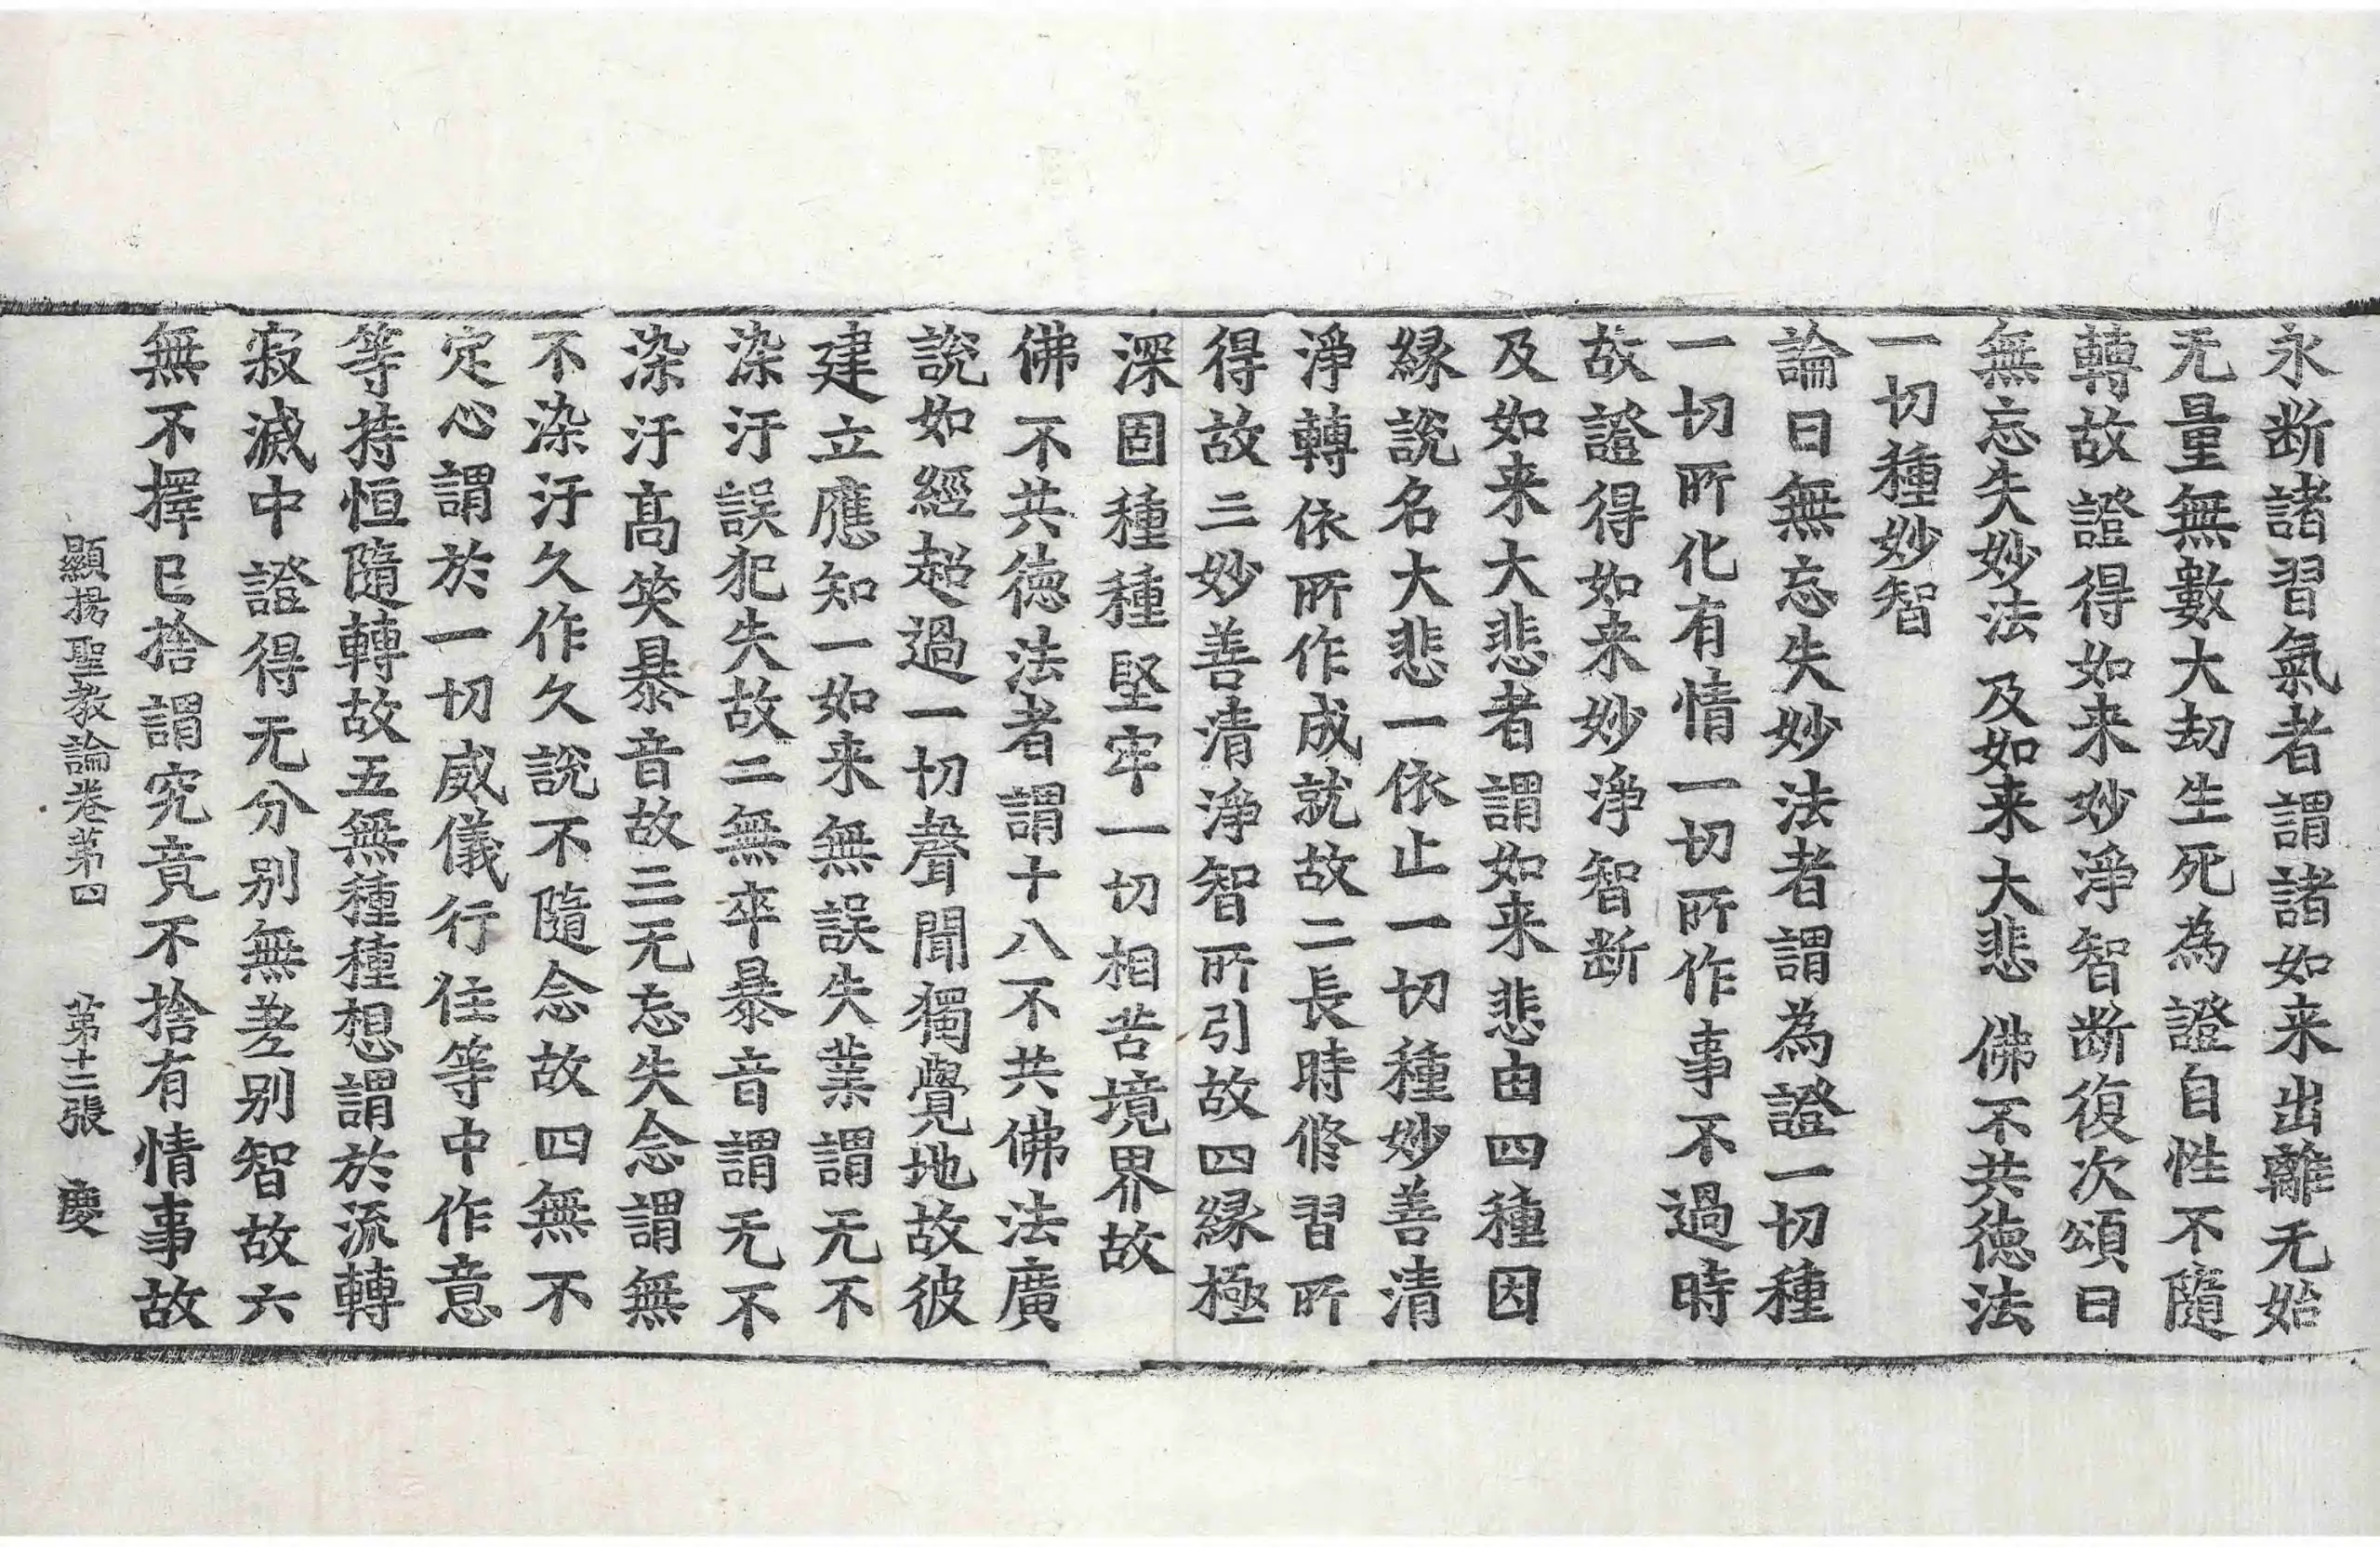 永断諸習氣者謂諸如来出離无始
无量無數大劫生死為證自性不隨
轉故證得如来妙淨智断復次頌曰
無忘失妙法 及如来大悲 佛不共徳法
一切種妙智
論曰無忘失妙法者謂為證一切種
一切所化有情一切所作事不過時
故證得如来妙淨智断
及如来大悲者謂如来悲由四種因
縁說名大悲一依止一切種妙善清
淨轉依所作成就故二長時修習所
得故三妙善清淨智所引故四縁極
深固種種堅牢一切相苦境界故
佛不共徳法者謂十八不共佛法廣
說如經超過一切聲聞獨覺地故彼
建立應知一如来無誤失業謂无不
染汙誤犯失故二無卒暴音謂无不
染汙髙笑暴音故三无忘失念謂無
不染汙久作久說不隨念故四無不
定心謂於一切威儀行住等中作意
等持恒隨轉故五無種種想謂於流轉
寂滅中證得无分别無差别智故六
無不擇已捨謂究竟不捨有情事故
顯揚聖教論卷第四 第十二張 慶